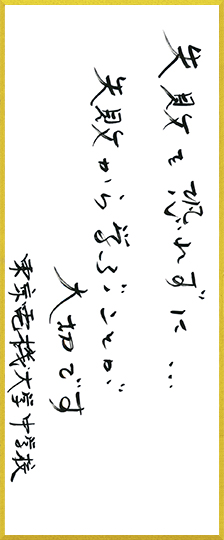 失敗を恐れずに…
失敗から学ぶことが
大切です
東京電機大学中学校